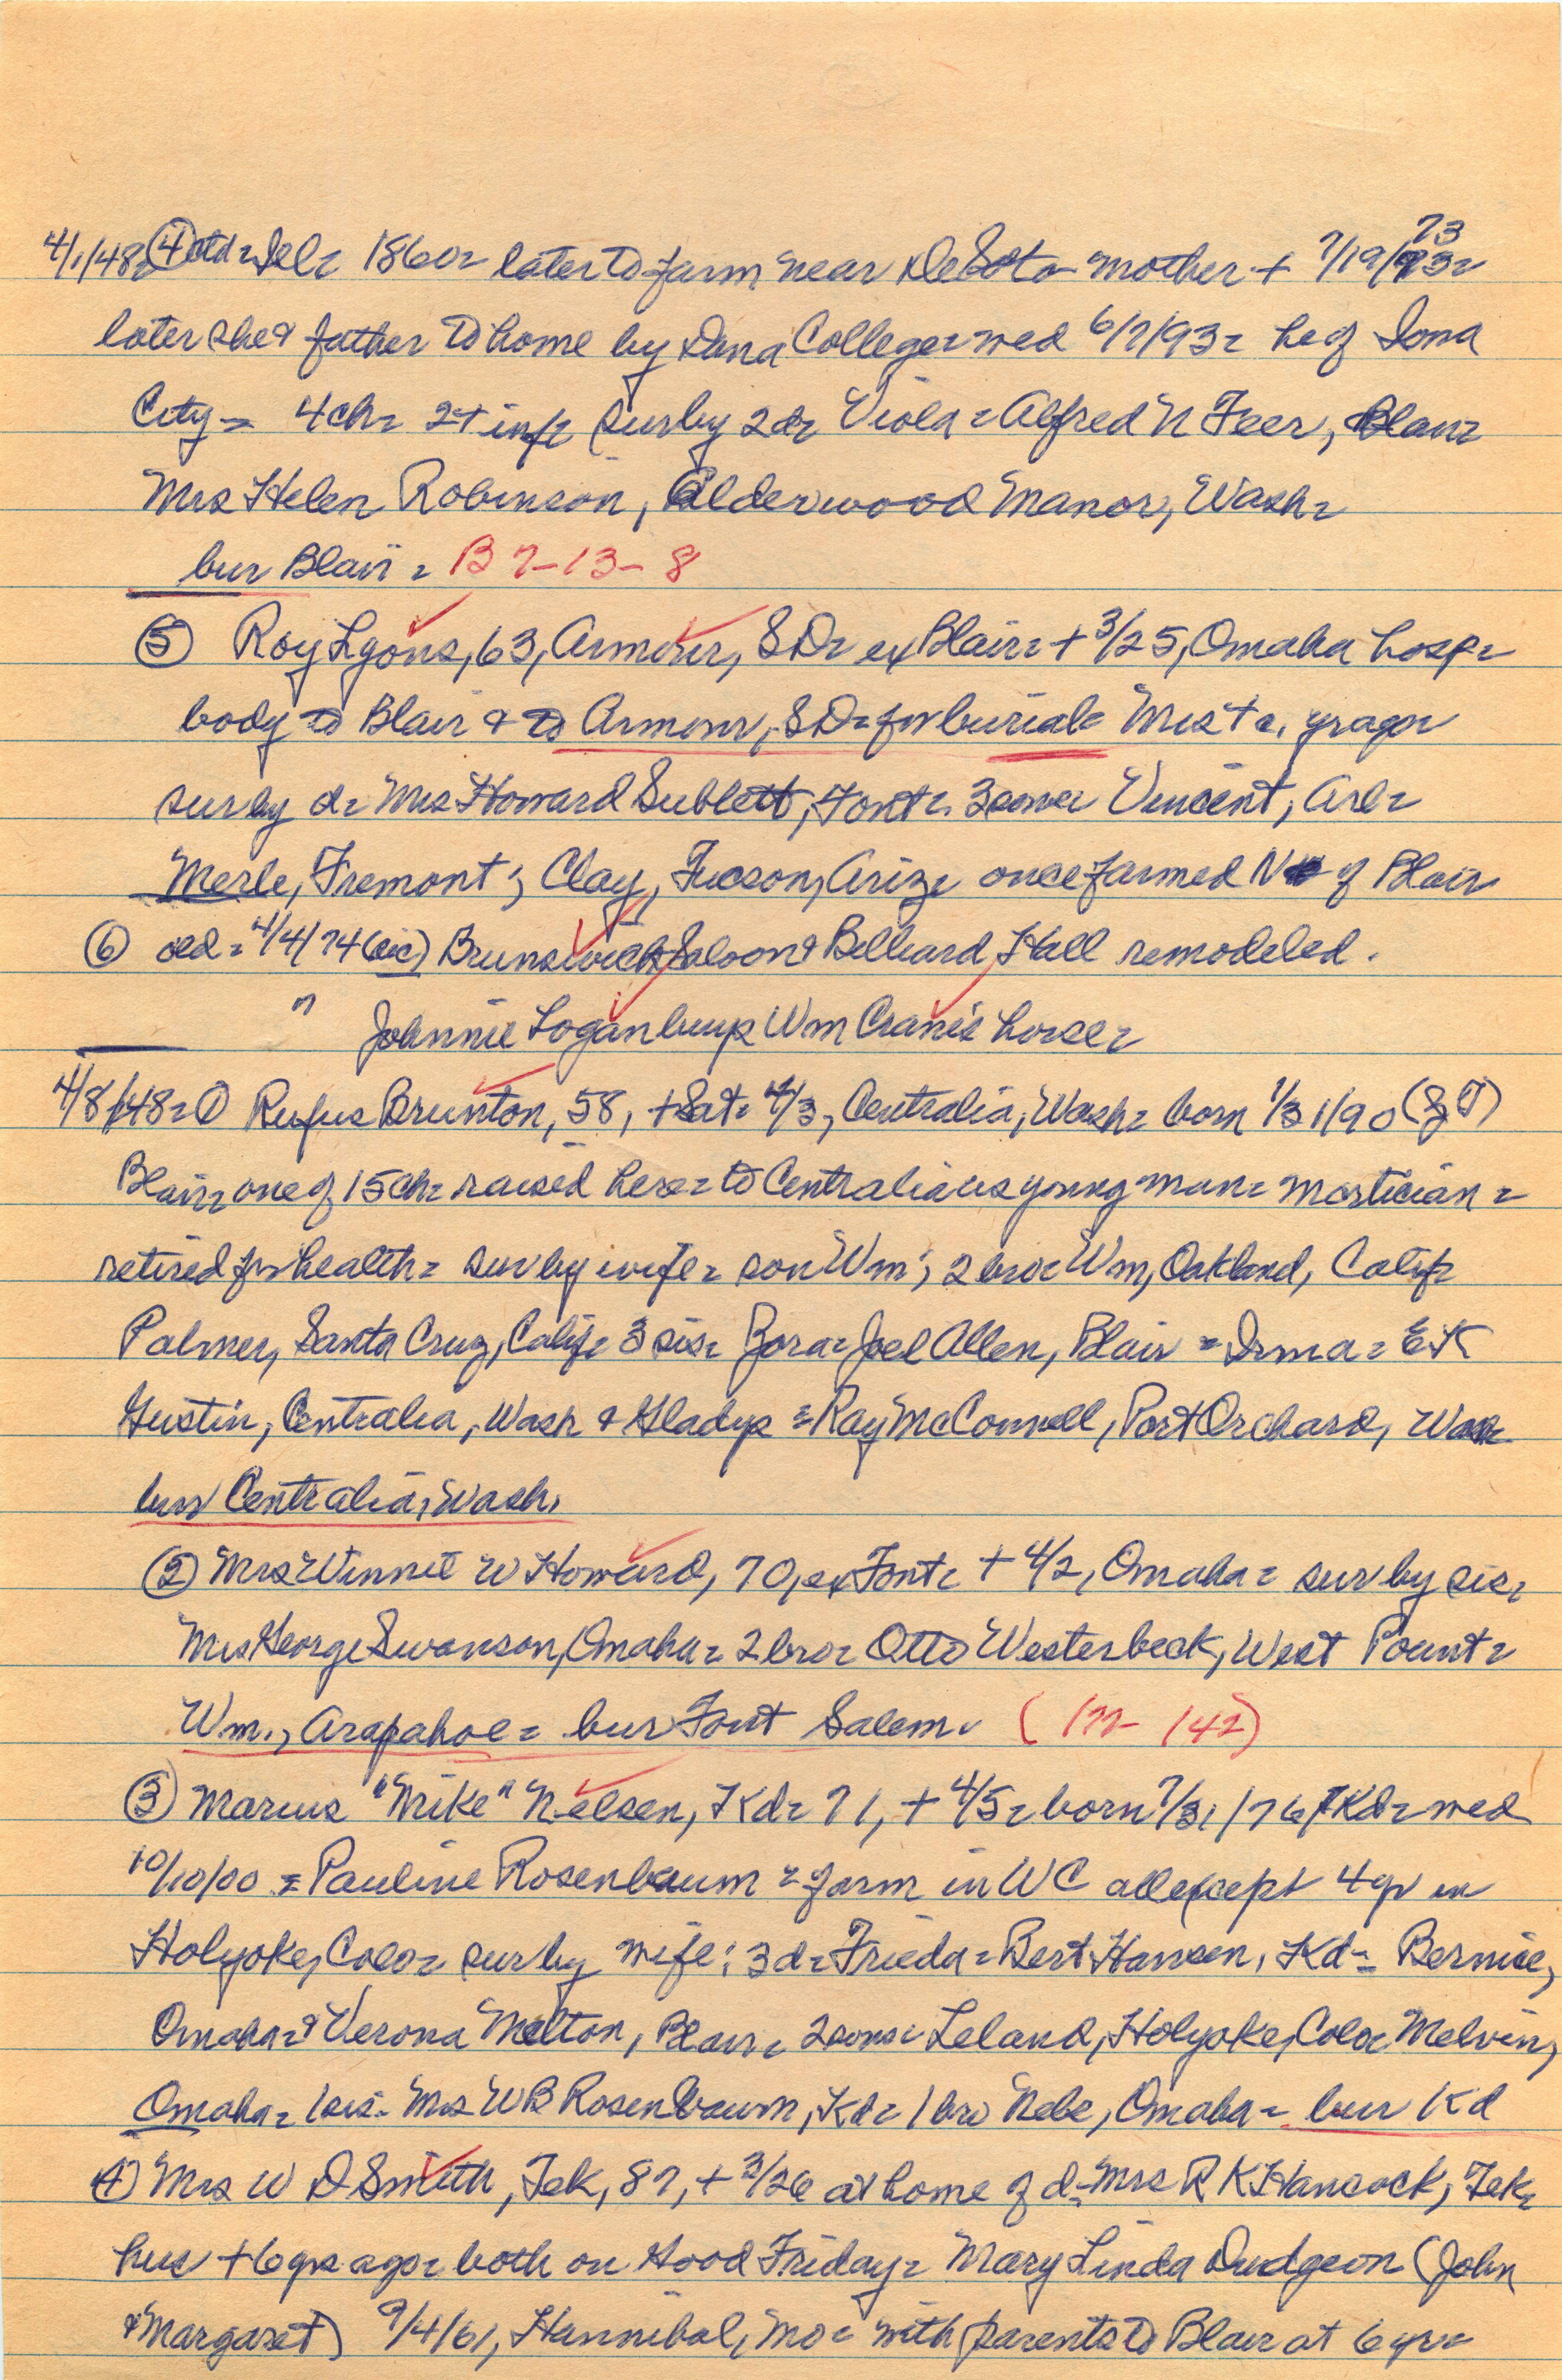 4/1/48= ④ ctd= Del= 1860= later to farm near DeSoto mother + 7/19/73=
later she & father to home by Dana College= wed 6/7/93= he of Iowa
City= 4 ch= 2+ inf= sur by 2 d= Viola= Alfred N Feer, Blair=
Mrs Helen Robinson, Alderwood Manor, Wash=
bur Blair= B 7-13-8
⑤ Roy Lyons, 63, Armour, SD= ex Blair= + 3/25, Omaha hosp=
body to Blair & to Armour, SD= for burial= Mrs + yrago=
sur by d= Mrs Howard Sublett, Font= 3 sons= Vincent, Arl=
Merle, Fremont; Clay, Tucson, Ariz= once farmed N of Blair
⑥ old= 4/4/74 (sic) Brunswick Saloon & Billiard Hall remodeled.
" Johnnie Logan buys Wm Crane's horse=
4/8/48= ① Rufus Brunton, 58, + Sat= 4/3, Centralia, Wash= born 1/31/90
Blair= one of 15 ch= raised here= to Centralia as young man= mortician=
retired for health= sur by wife= son Wm; 2 bro= Wm, Oakland, Calif=
Palmer, Santa Cruz, Calif= 3 sis= Zora= Joel Allen, Blair= Irma= EK
Gustin, Centralia, Wash & Gladys= Ray McConnell, Port Orchard, Wash
bur Centralia, Wash.
② Mrs Winnie W Howard, 70, ex Font= + 4/2, Omaha= sur by sis=
Mrs George Swanson, Omaha= 2 bro= Otto Westerbeck, West Point=
Wm., Arapahoe= bur Font Salem. (177-142)
③ Marius "Mike" Nielsen, Kd= 71, + 4/5= born 7/31/76, Kd= wed
10/10/00 = Pauline Rosenbaum= farm in WC all except 4 yr in
Holyoke, Colo= sur by wife; 3 d= Frieda= Bert Hansen, Kd= Bernice,
Omaha= & Verona Melton, Blair= 2 sons= Leland, Holyoke, Colo= Melvin,
Omaha= 1 sis= Mrs WB Rosenbaum, Kd= 1 bro Nels, Omaha= bur Kd
④ Mrs W D Smith, Tek, 87, + 3/26 at home of d= Mrs R K Hancock, Tek=
hus + 6 yrs ago= both on Good Friday= Mary Linda Dudgeon (John
& Margaret) 9/4/61, Hannibal, Mo= with parents to Blair at 6 yr=